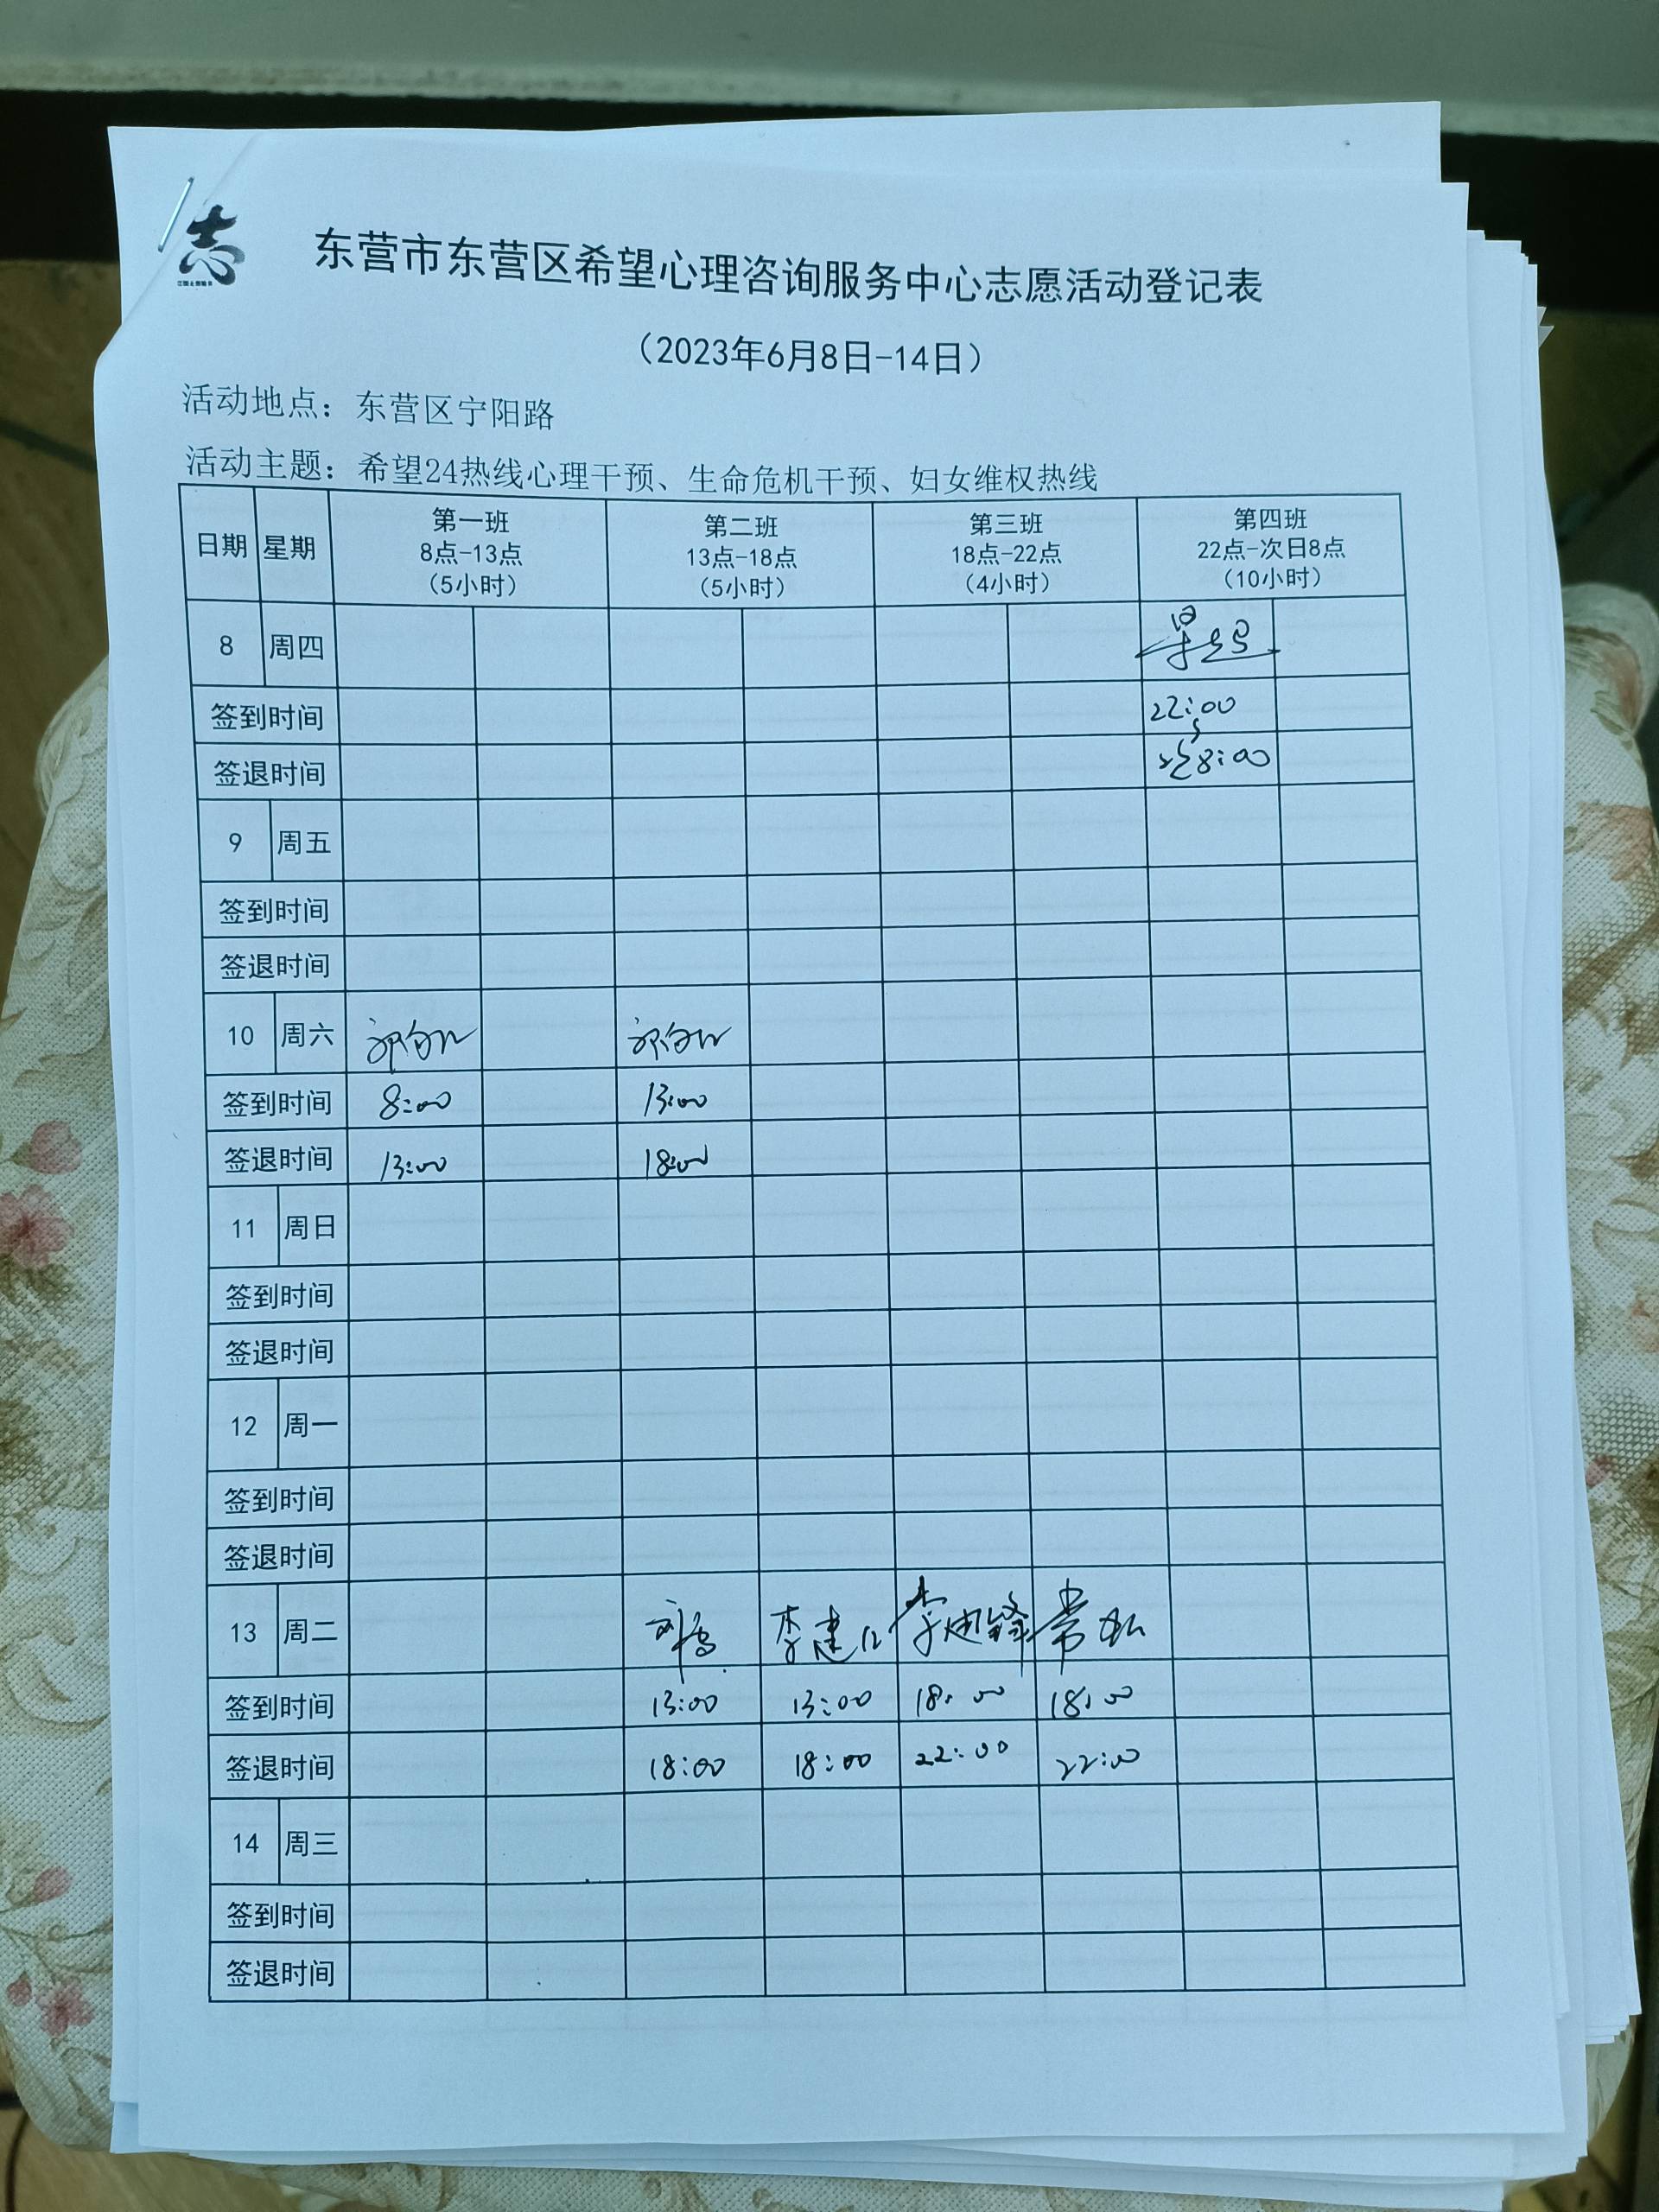 志
东营市东营区希望心理咨询服务中心志愿活动登记表
（2023年6月8日-14日）
活动地点：东营区宁阳路
活动主题：希望24热线心理干预、生命危机干预、妇女维权热线
日期 星期 第一班 8点-13点 （5小时） 第二班 13点-18点 （5小时） 第三班 18点-22点 （4小时） 第四班 22点-次日8点 （10小时）
8 周四
签到时间 22:00
签退时间 8:00
9 周五
签到时间
签退时间
10 周六
签到时间 8:00 13:00
签退时间 13:00 18:00
11 周日
签到时间
签退时间
12 周一
签到时间
签退时间
13 周二 李建 李迪锋 常
签到时间 13:00 13:00 18:00 18:00
签退时间 18:00 18:00 22:00 22:00
14 周三
签到时间
签退时间